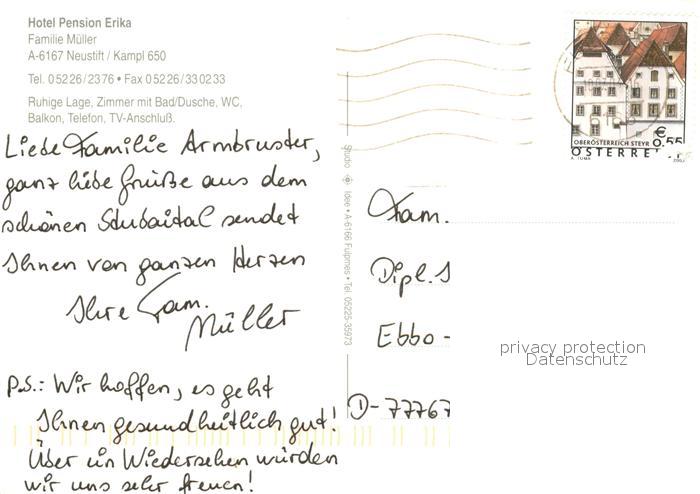 Hotel Pension Erika
Familie Müller
A-6167 Neustift / Kampl 650
Tel. 0 52 26 / 23 76 • Fax 0 52 26 / 33 02 33
Ruhige Lage, Zimmer mit Bad/Dusche, WC,
Balkon, Telefon, TV-Anschluß.
Liebe Familie Armbruster,
ganz liebe Grüße aus dem
schönen Stubaital sendet
Ihnen von ganzen Herzen
Ihre Fam.
Müller
P.S.: Wir hoffen, es geht
Ihnen gesundheitlich gut!
Über ein Wiedersehen würden
wir uns sehr freuen!
Studio Idee • A-6166 Fulpmes • Tel. 05225-35973
€
0.55
OBERÖSTERREICH STEYR
ÖSTERRE
Fam.
Dipl.
Ebbo-
D-77767
privacy protection
Datenschutz